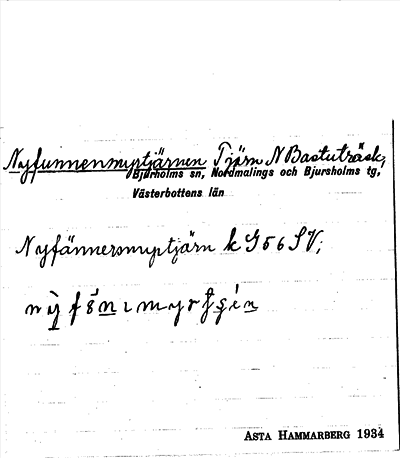 Nyfunnenmyrtjärnen Tjärn N Bastuträsk,
Bjurholms sn, Nordmalings och Bjursholms tg,
Västerbottens län
Nyfännersmyrtjärn k G56 SV;
ASTA HAMMARBERG 1934